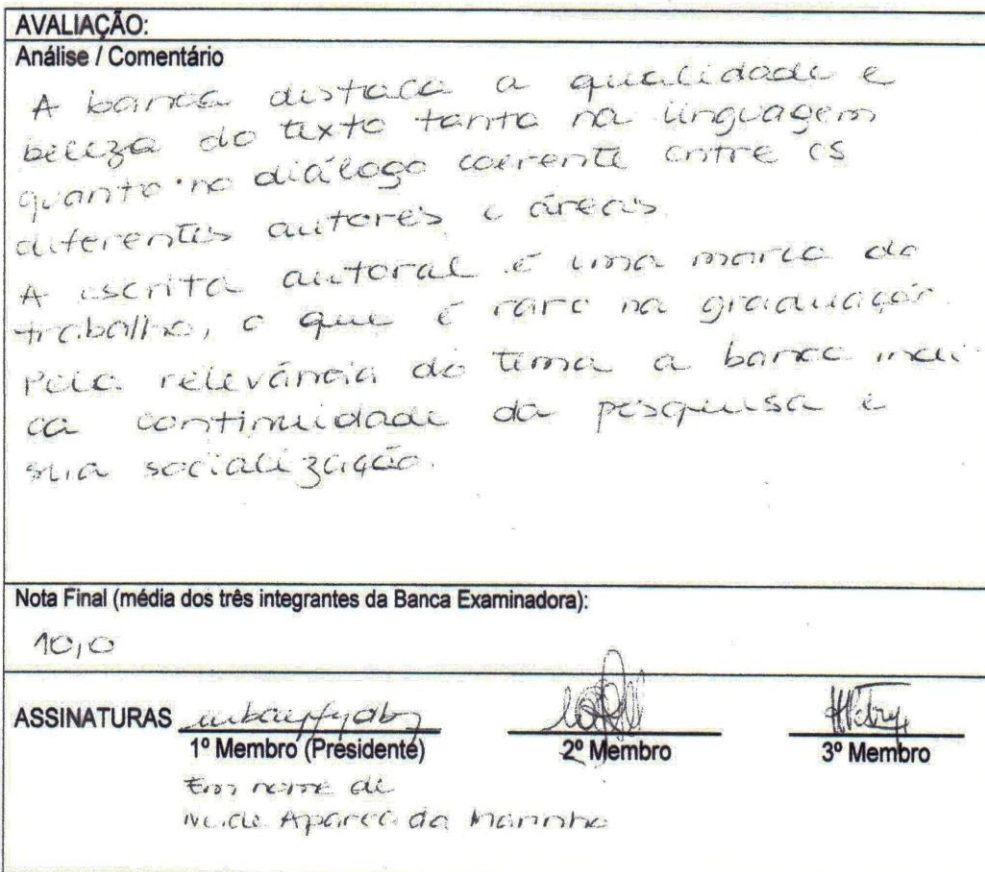 AVALIAÇÃO:
Análise / Comentário
A banca destaca a qualidade e
beleza do texto tanto na linguagem
quanto no diálogo coerente entre os
diferentes autores e áreas.
A escrita autoral é uma marca do
trabalho, o que é raro na graduação.
Pela relevância do tema a banca indi-
ca continuidade da pesquisa e
sua socialização.
Nota Final (média dos três integrantes da Banca Examinadora):
10,0
ASSINATURAS
1º Membro (Presidente) 2º Membro 3º Membro
Em nome de
Neide Aparecida Marinho